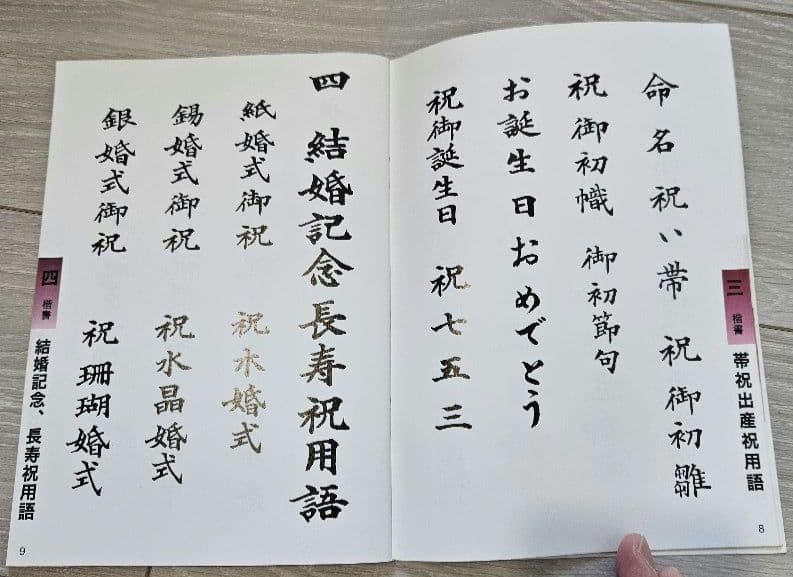 三 楷書 帯祝出産祝用語
命名 祝い帯 祝御初雛
祝御初幟 御初節句
お誕生日おめでとう
祝御誕生日 祝七五三
8
四 結婚記念長寿祝用語
紙婚式御祝 祝木婚式
錫婚式御祝 祝水晶婚式
銀婚式御祝 祝珊瑚婚式
四 楷書 結婚記念、長寿祝用語
9